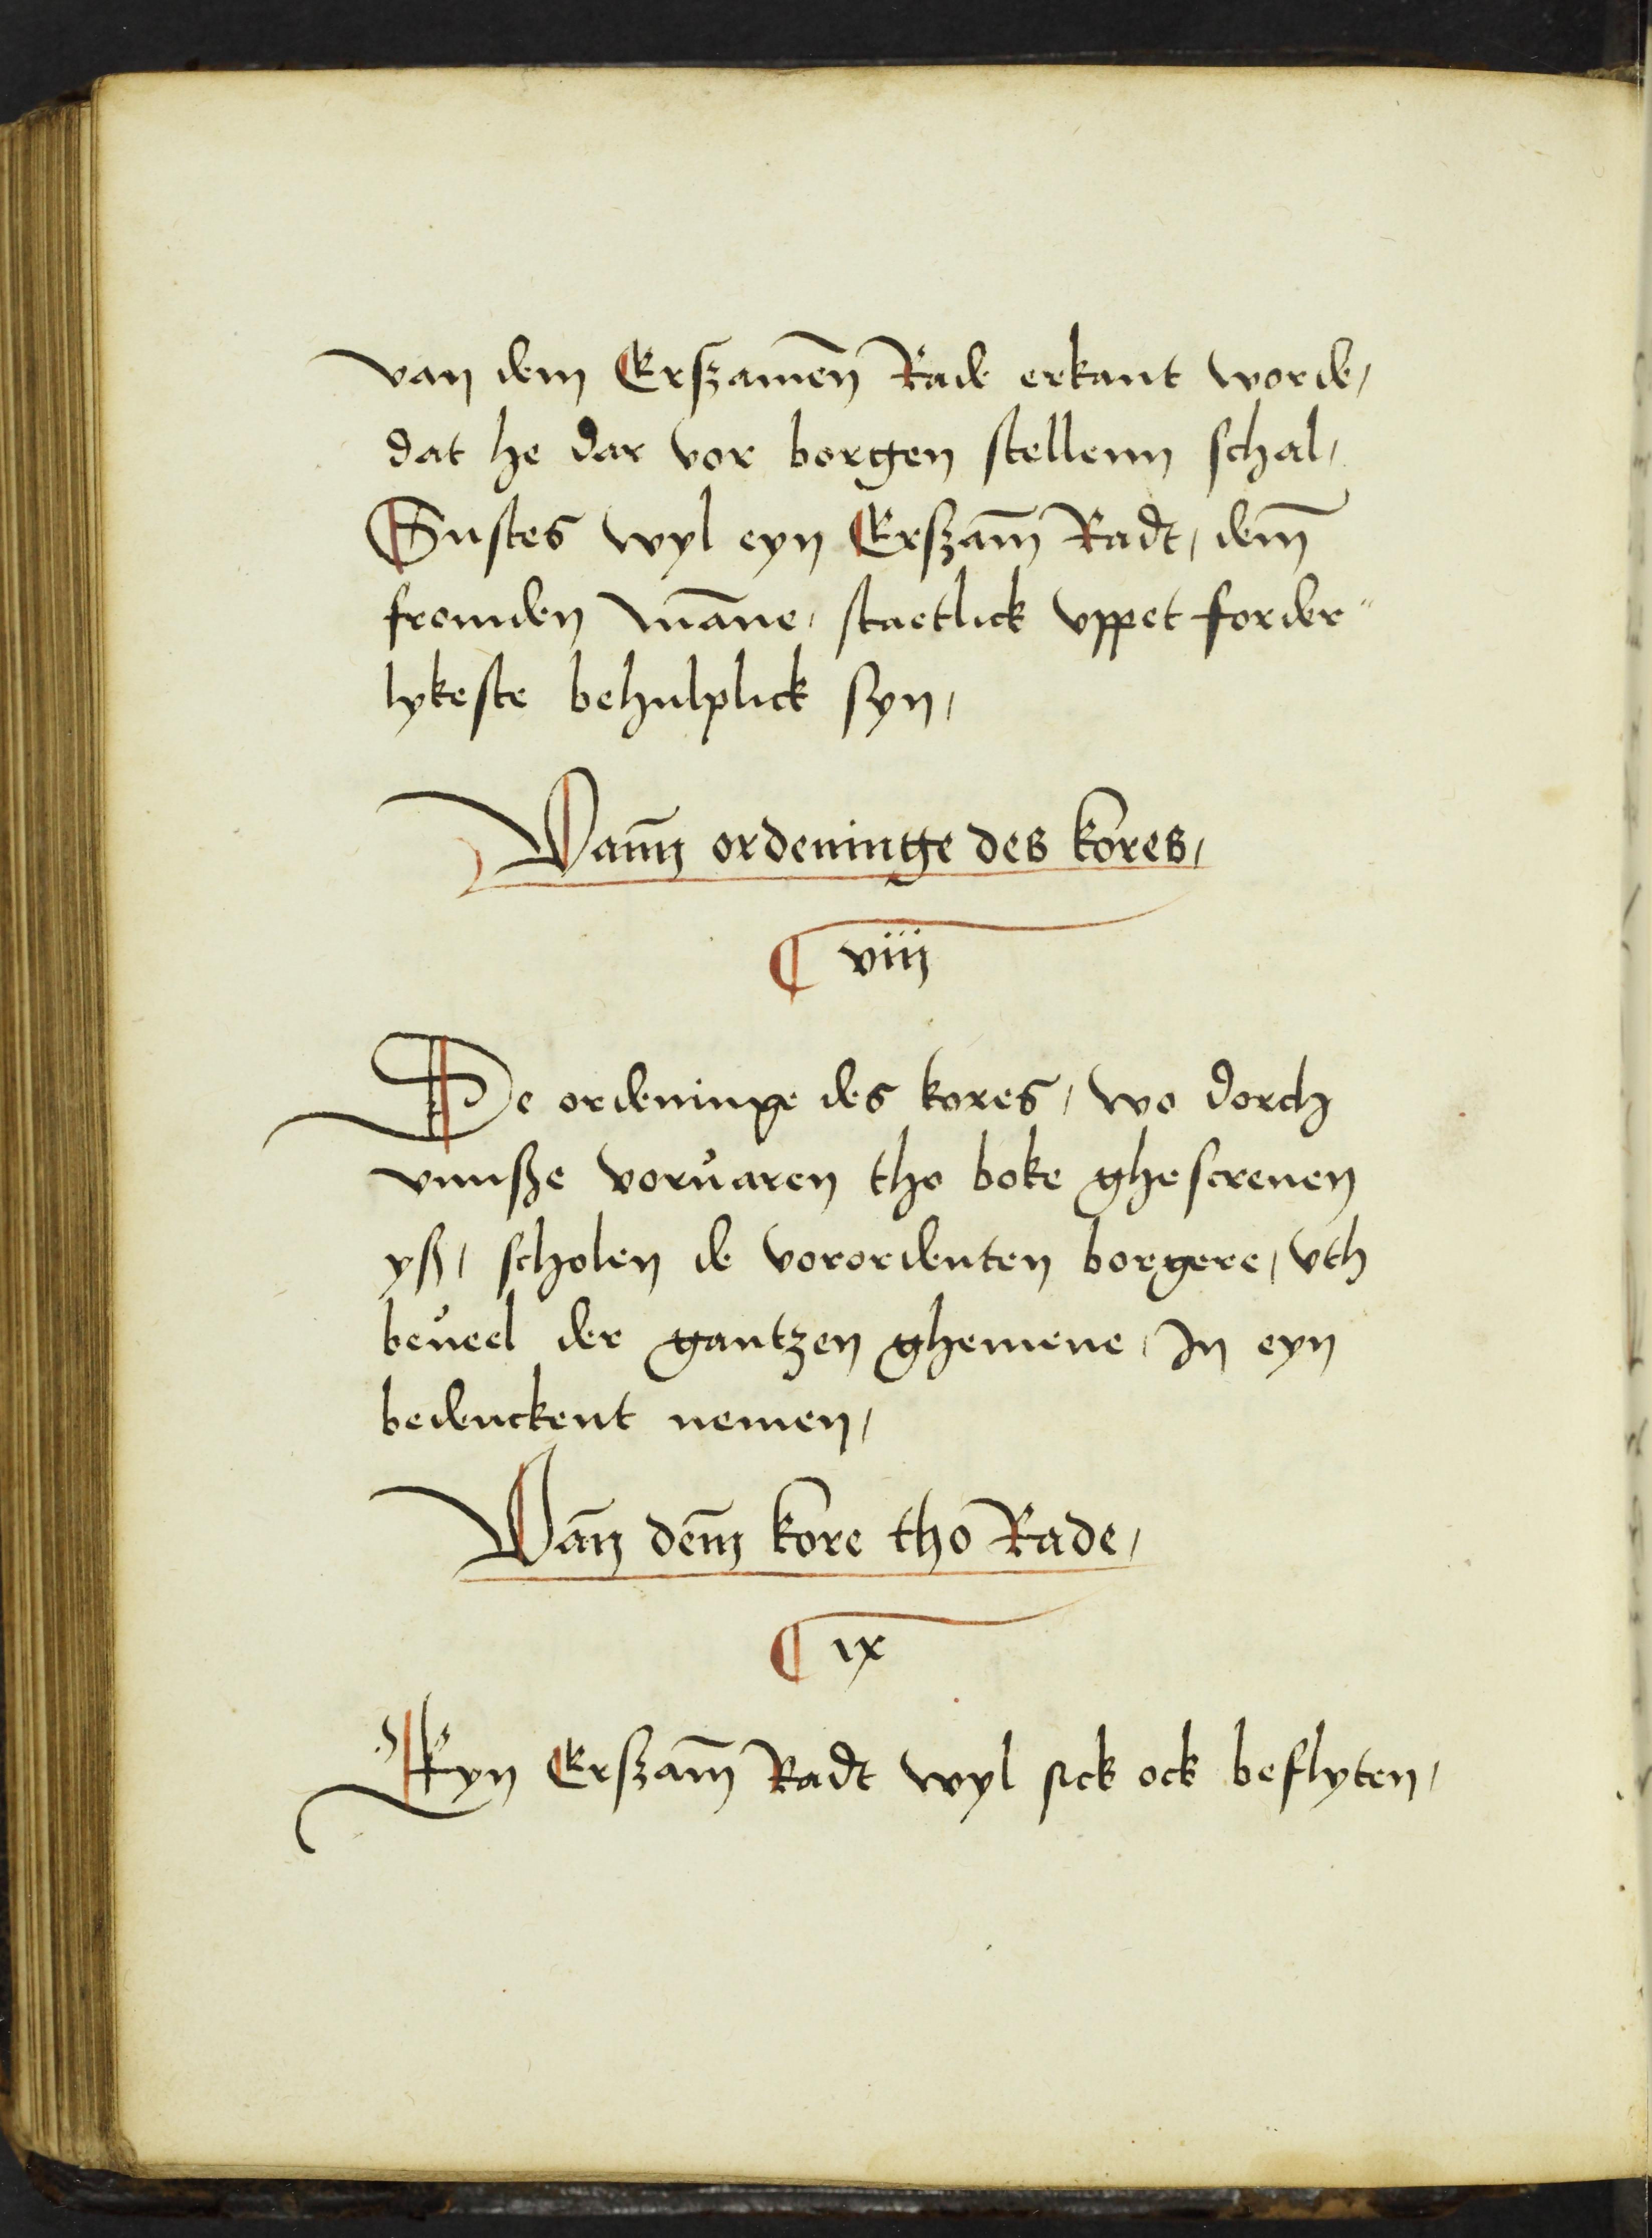 van dem Erszamen̄ Rade erkant worde,
dat he dar vor borgen stellenn schal,
Sustes wyl eyn Erszam̄ Radt, dem̄
fromden man̄e, staetlick vppet forder"
lykeste behulplick syn,
Vann̄ ordeninge des kores,
¶ viij
De ordeninge des kores, wo dorch
vnnsze vorůaren tho boke ghescreuen
ysz, scholen de vorordenten borgere, vth
beůeel der gantzen ghemene, In eyn
bedenckent nemen,
Van̄ dem̄ kore tho Rade,
¶ ix
Eyn Erszam̄ Radt wyl sick ock beflyten,